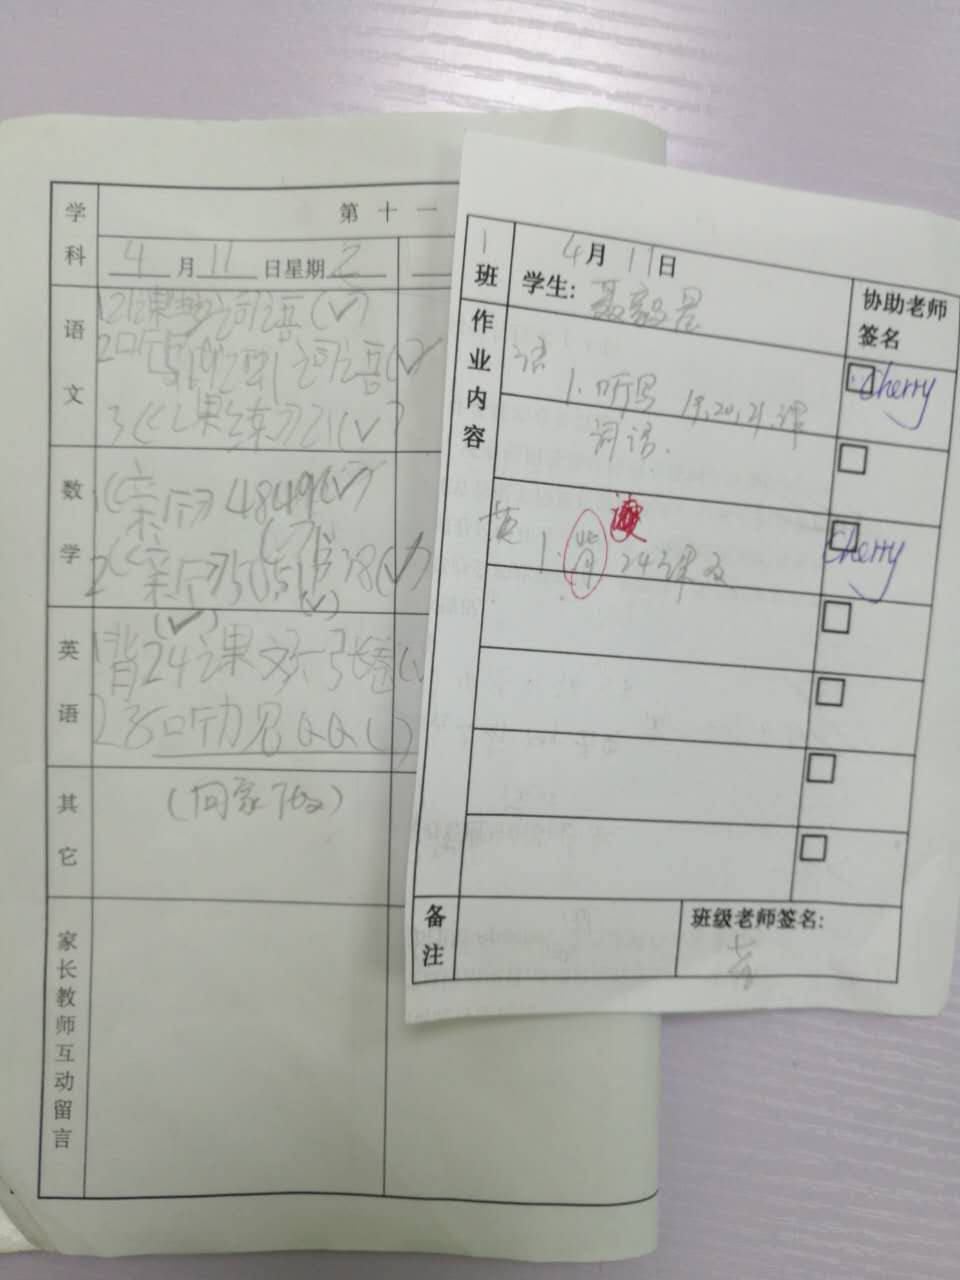 学科
第十一
4月11日星期2
语文
21课 词语(✓)
2听写19.20.21词语(✓)
3《 课练》21(✓)
数学
1《亲历》4849(✓)
2《亲历》5051 (✓)
英语
1背24课 张卷(
2 听力见QQ( )
其它
(回家 )
家长教师互动留言
1班
4月11日
学生:
协助老师签名
作业内容
语
1.听写 19,20,21,课
Cherry
词语.
英
1.背 24课文
Cherry
备注
班级老师签名: